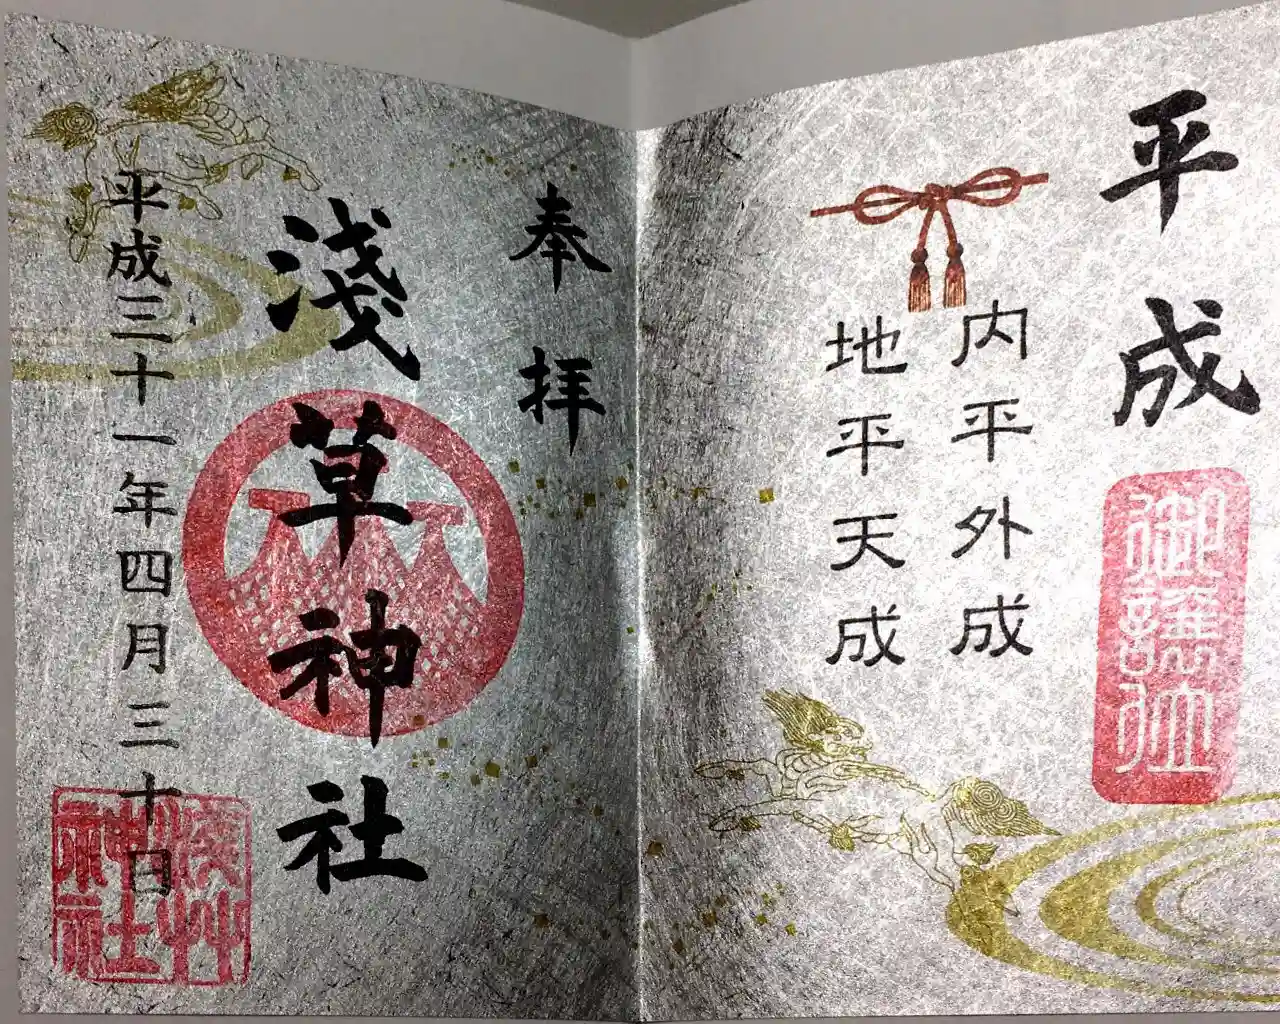 平成
御譲位
内平外成
地平天成
奉拝
淺草神社
平成三十一年四月三十日
淺草
神社